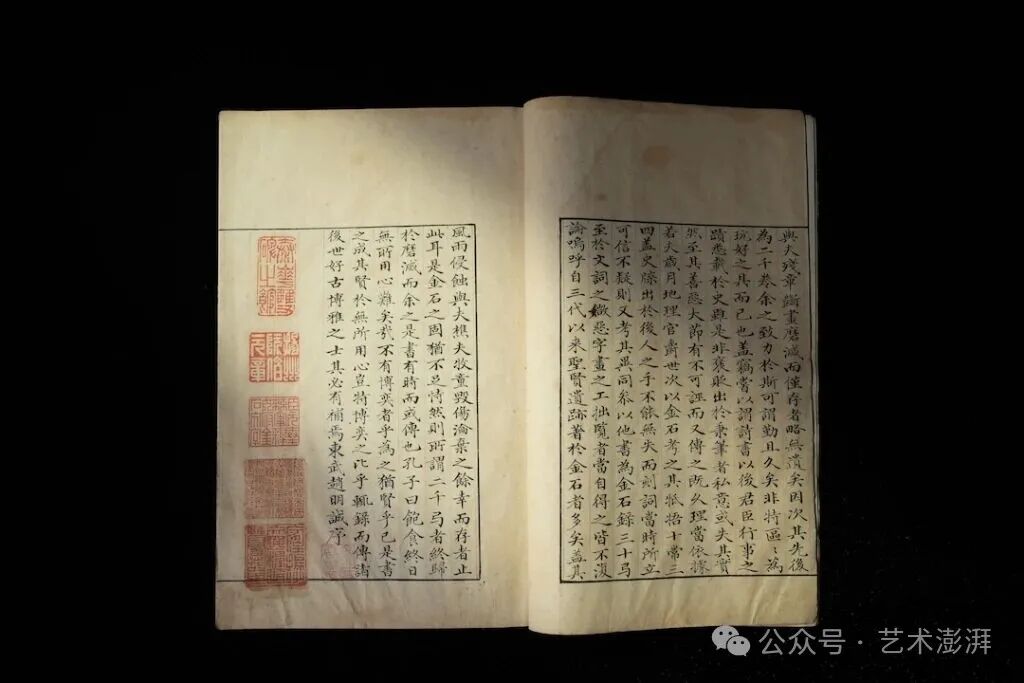 與夫殘章斷畫磨滅而僅存者略無遺矣因次其先後
為二千卷余之致力於斯可謂勤且久矣非特區〻為
玩好之具而已也蓋竊嘗以謂詩書以後君臣行事之
蹟悉載於史雖是非褒貶出於秉筆者私意或失其實
然至其善惡大節有不可誣而又傳之既久理當依據
若夫歲月地理官爵世次以金石考之其牴牾十常三
四蓋史牒出於後人之手不能無失而刻詞當時所立
可信不疑則又考其異同叅以他書為金石錄三十弓
至於文詞之媺惡字畫之工拙覧者當自得之皆不復
論嗚呼自三代以来聖賢遺跡著於金石者多矣蓋其
風雨侵蝕與夫樵夫牧童毀傷淪棄之餘幸而存者止
此耳是金石之固猶不足恃然則所謂二千弓者終歸
於磨滅而余之是書有時而或傳也孔子曰飽食終日
無所用心難矣哉不有博奕者乎為之猶賢乎已是書
之成其賢於無所用心豈特博奕之比乎輒錄而傳諸
後世好古博雅之士其必有補焉東武趙明誠序
泰華雙碑之館
揚州阮伯元章
公众号 · 艺术澎湃